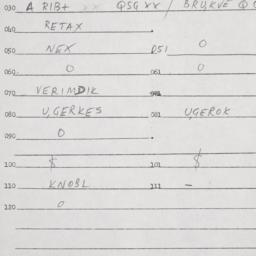 030 A RIB+ QSGXX / BRUKVE Q O
040 RETAX
050 NEX 051 O
060 O 061 O
070 VERIMDIK
080 UGERKES 081 UGEROK
090 O
100 $ 101 $
110 KNOBL 111 -
120 O